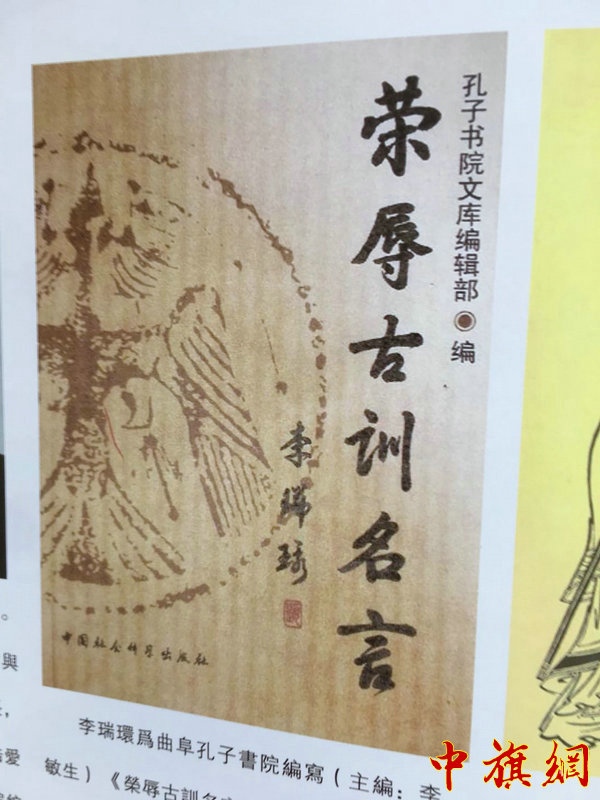 孔子书院文库编辑部 ◉ 编
荣辱古训名言
李瑞环
中国社会科学出版社
。
與
愛
李瑞環爲曲阜孔子書院編寫（主編：李
敏生）《榮辱古訓名
中旗網